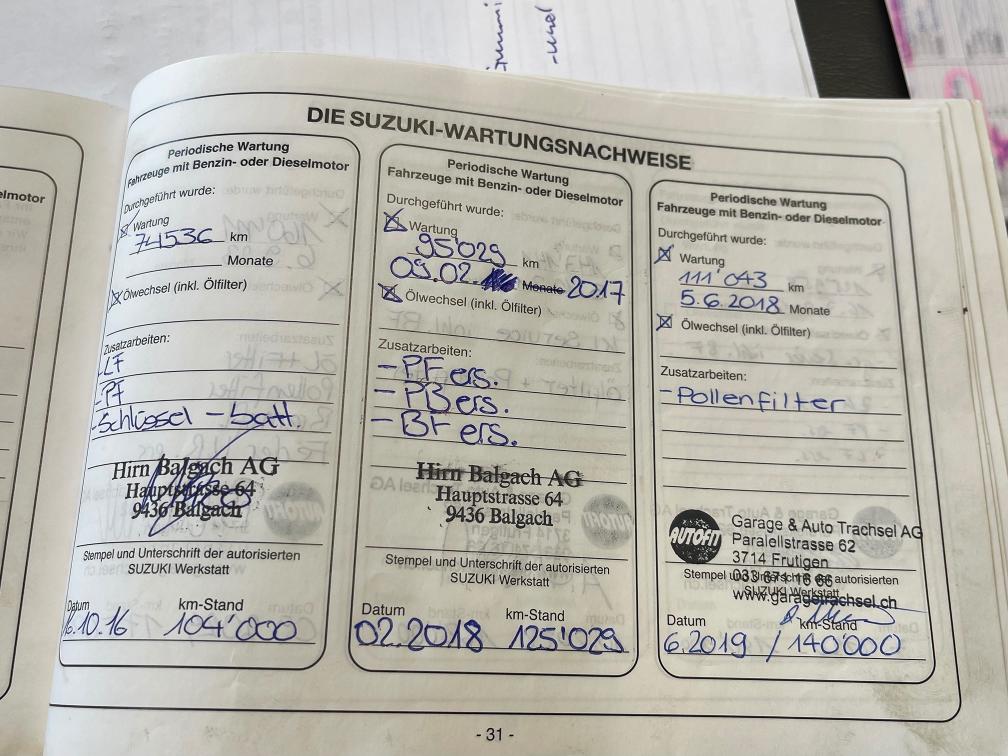 DIE SUZUKI-WARTUNGSNACHWEISE
elmotor
Periodische Wartung
Fahrzeuge mit Benzin- oder Dieselmotor
Durchgeführt wurde:
Wartung
74536 km
Monate
Ölwechsel (inkl. Ölfilter)
Zusatzarbeiten:
-LF
-Pf
-Schlüssel - batt.
Hirn Balgach AG
Hauptstrasse 64
9436 Balgach
Stempel und Unterschrift der autorisierten
SUZUKI Werkstatt
Datum km-Stand
6.10.16 104'000
Periodische Wartung
Fahrzeuge mit Benzin- oder Dieselmotor
Durchgeführt wurde:
Wartung
95'029 km
09.02. Monate 2017
Ölwechsel (inkl. Ölfilter)
Zusatzarbeiten:
- PF ers.
- PB ers.
- Bf ers.
Hirn Balgach AG
Hauptstrasse 64
9436 Balgach
Stempel und Unterschrift der autorisierten
SUZUKI Werkstatt
Datum km-Stand
02.2018 125'029
Periodische Wartung
Fahrzeuge mit Benzin- oder Dieselmotor
Durchgeführt wurde:
Wartung
111'043 km
5.6.2018 Monate
Ölwechsel (inkl. Ölfilter)
Zusatzarbeiten:
- Pollenfilter
AUTOFIT
Garage & Auto Trachsel AG
Paralellstrasse 62
3714 Frutigen
033 671 16 66
Stempel und Unterschrift der autorisierten
SUZUKI Werkstatt
www.garagetrachsel.ch
Datum km-Stand
6.2019 / 140000
- 31 -